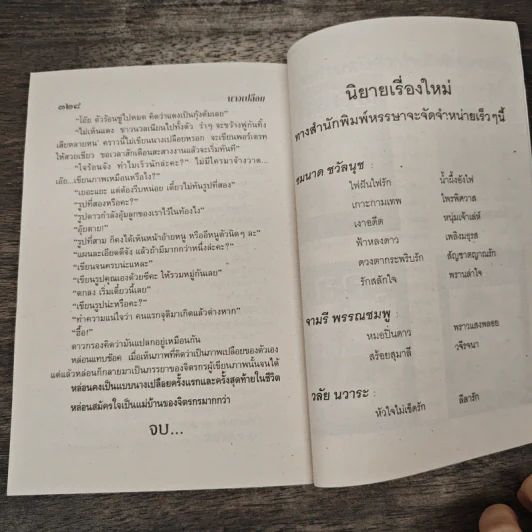 ๓๒๘ นางเปลือย
"โอ๊ย ตัวร้อนชู่ไปหมด คิดว่าแดงเป็นกุ้งต้มเลย"
"ไม่เห็นแดง ขาวนวลเนียนไปทั้งตัว
เสียหลายหน คราวนี้ไม่เขียนนางเปลือยหรอก จะเขียนพอร์เตรท
ให้สวยเชียว ขอเวลาสักเดือนสะสางงานแล้วจะเริ่มทันที"
"ใจร้อนจัง ทำไมเร็วนักล่ะคะ?" ไม่มีใครมาจ้างวาด...
เอ๊ย...เขียนภาพเหมือนหรือไง?"
"เยอะแยะ แต่ต้องรีบหน่อย เดี๋ยวไม่ทันรูปที่สอง"
"รูปที่สองหรือคะ?"
"รูปดาวกำลังอุ้มลูกของเราไว้ในท้องไง"
"อุ๊ยตาย!"
"รูปที่สาม ก็คงได้เห็นหน้าอ้ายหนู หรืออีหนูตัวนิดๆ ละ"
"แผนละเอียดดีจัง แล้วถ้ามีมากกว่าหนึ่งล่ะคะ?"
"เขียนจนครบน่ะแหละ"
"เขียนรูปคุณเองด้วยซีคะ ให้รวมหมู่กันเลย"
"ตกลง เริ่มเดี๋ยวนี้เลย"
"เขียนรูปน่ะหรือคะ?"
"ทำความแน่ใจว่า คนแรกจุติมาเกิดแล้วต่างหาก"
"ฮื้อ!"
ดาวกรองคิดว่ามันแปลกอยู่เหมือนกัน
หล่อนแทบช็อค เมื่อเห็นภาพที่คิดว่าเป็นภาพเปลือยของตัวเอง
แต่แล้วหล่อนก็กลายมาเป็นภรรยาของจิตรกรผู้เขียนภาพนั้นจนได้
หล่อนคงเป็นแบบนางเปลือยครั้งแรกและครั้งสุดท้ายในชีวิต
หล่อนสมัครใจเป็นแม่บ้านของจิตรกรมากกว่า
จบ...
นิยายเรื่องใหม่
ทางสำนักพิมพ์หรรษาจะจัดจำหน่ายเร็วๆนี้
ชมนาด ชวัลนุช :
ไฟฝันไฟรัก น้ำผึ้งยังไฟ
เกาะกามเทพ ไพรพิศวาส
เงาอดีต หนุ่มเจ้าเล่ห์
ฟ้าหลงดาว เพลิงมธุรส
ดวงดากระพริบรัก สัญชาตญาณรัก
รักสลักใจ พรานล่าใจ
จามรี พรรณชมพู :
หมอปิ่นดาว พราวแสงพลอย
สร้อยสุมาลี วจีรจนา
วลัย นวาระ :
หัวใจไม่เข็ดรัก ลีลารัก